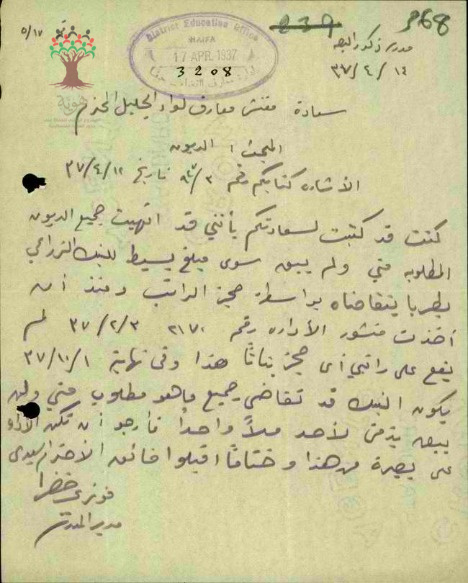 868
239
٥/١٧
District Education Office
HAIFA
17 APR. 1937
3208
هوية
مدرسة ذكور البصة
٣٧/٤/١٤
سعادة مفتش معارف لواء الجليل المحترم
المبحث: الديون
الاشارة كتابكم رقم تاريخ ٣٧/٤/١٢
كنت قد كتبت لسعادتكم بأنني قد انهيت جميع الديون
المطلوبه مني ولم يبق سوى مبلغ بسيط للبنك الزراعي
بطبريا يتقاضاه بواسطة حجز الراتب ومنذ أن
أخذت منشور الأداره رقم ٢١٧٠ ٣٧/٢/٣ لم
يقع على راتبي أي حجز بتاتاً هذا وفي نهاية ٣٧/١٠/١
يكون البنك قد تقاضى جميع ماهو مطلوب مني ولن
يبقى بذمتي لأحد ملاً واحداً فأرجو أن تكون الأداره
على بصيرة من هذا وختاماً اقبلوا فائق الاحترام سيدي
فوزي خضرا
مدير المدرسة